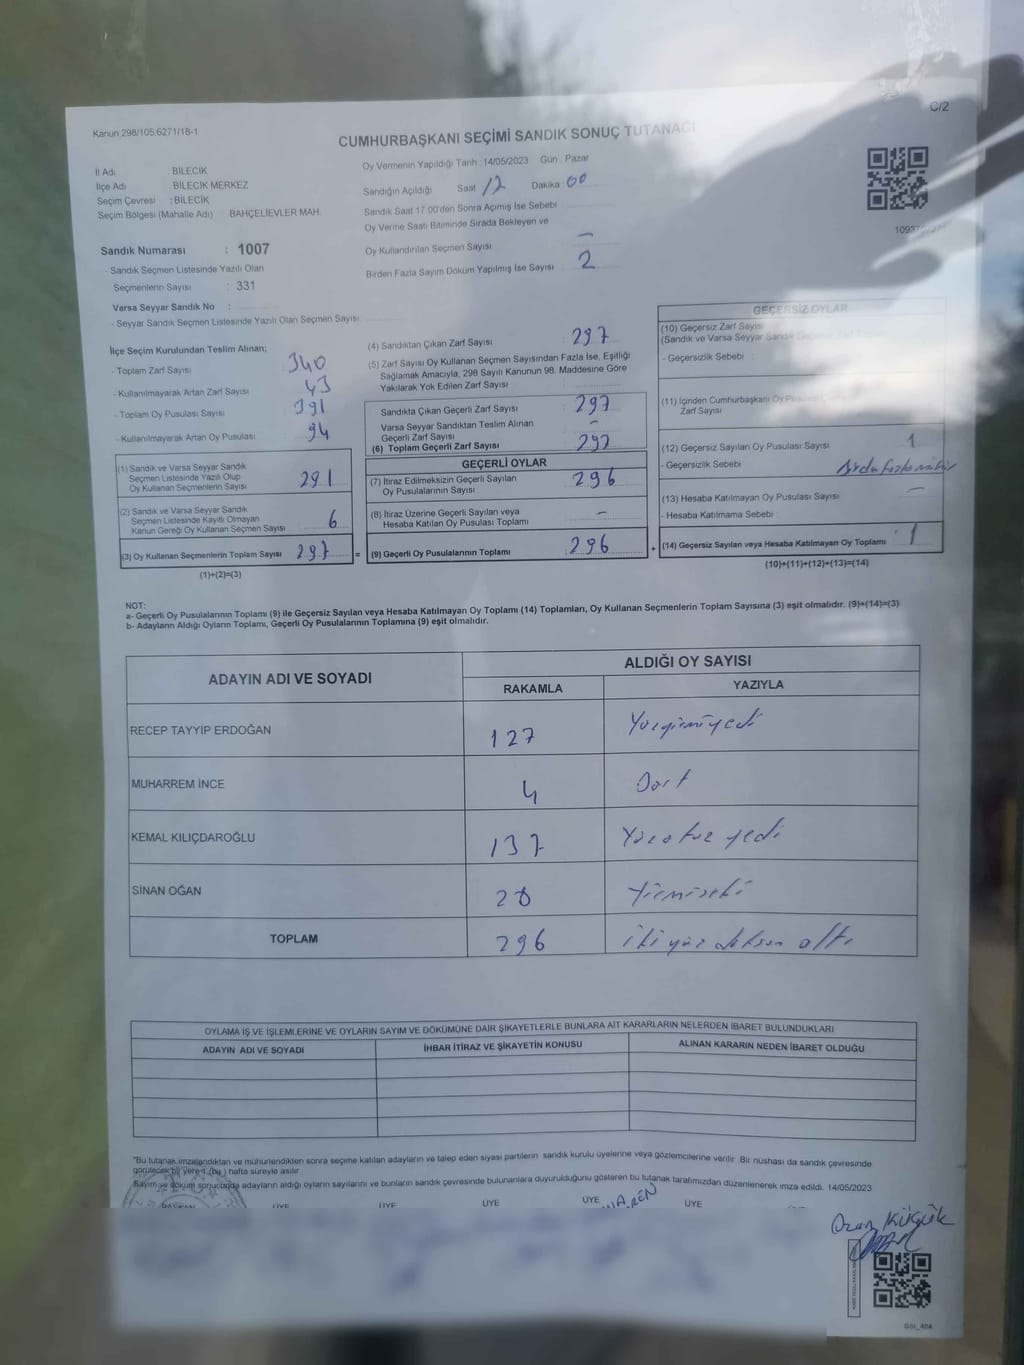 C/2
Kanun:298/105;6271/18-1
CUMHURBAŞKANI SEÇİMİ SANDIK SONUÇ TUTANAĞI
İl Adı : BİLECİK
İlçe Adı : BİLECİK MERKEZ
Seçim Çevresi : BİLECİK
Seçim Bölgesi (Mahalle Adı) BAHÇELİEVLER MAH.
Oy Vermenin Yapıldığı Tarih :14/05/2023 Gün : Pazar
Sandığın Açıldığı Saat 17 Dakika : 00
Sandık Saat 17:00'den Sonra Açılmış İse Sebebi
Oy Verme Saati Bitiminde Sırada Bekleyen ve
Oy Kullandırılan Seçmen Sayısı –
Birden Fazla Sayım Döküm Yapılmış İse Sayısı : 2
Sandık Numarası : 1007
- Sandık Seçmen Listesinde Yazılı Olan
Seçmenlerin Sayısı : 331
Varsa Seyyar Sandık No :
- Seyyar Sandık Seçmen Listesinde Yazılı Olan Seçmen Sayısı
İlçe Seçim Kurulundan Teslim Alınan;
- Toplam Zarf Sayısı : 340
- Kullanılmayarak Artan Zarf Sayısı : 43
- Toplam Oy Pusulası Sayısı : 391
- Kullanılmayarak Artan Oy Pusulası : 94
(1) Sandık ve Varsa Seyyar Sandık
Seçmen Listesinde Yazılı Olup
Oy Kullanan Seçmenlerin Sayısı 291
(2) Sandık ve Varsa Seyyar Sandık
Seçmen Listesinde Kayıtlı Olmayan
Kanun Gereği Oy Kullanan Seçmen Sayısı 6
(3) Oy Kullanan Seçmenlerin Toplam Sayısı 297
(1)+(2)=(3)
(4) Sandıktan Çıkan Zarf Sayısı : 297
(5) Zarf Sayısı Oy Kullanan Seçmen Sayısından Fazla İse, Eşitliği
Sağlamak Amacıyla, 298 Sayılı Kanunun 98. Maddesine Göre
Yakılarak Yok Edilen Zarf Sayısı
Sandıkta Çıkan Geçerli Zarf Sayısı : 297
Varsa Seyyar Sandıktan Teslim Alınan
Geçerli Zarf Sayısı –
(6) Toplam Geçerli Zarf Sayısı : 297
GEÇERLİ OYLAR
(7) İtiraz Edilmeksizin Geçerli Sayılan
Oy Pusulalarının Sayısı : 296
(8) İtiraz Üzerine Geçerli Sayılan veya
Hesaba Katılan Oy Pusulası Toplamı : –
= (9) Geçerli Oy Pusulalarının Toplamı : 296
GEÇERSİZ OYLAR
(10) Geçersiz Zarf Sayısı
(Sandık ve Varsa Seyyar Sandık
- Geçersizlik Sebebi :
(11) İçinden Cumhurbaşkanı Oy
Zarf Sayısı
(12) Geçersiz Sayılan Oy Pusulası Sayısı 1
- Geçersizlik Sebebi
(13) Hesaba Katılmayan Oy Pusulası Sayısı –
- Hesaba Katılmama Sebebi :
+ (14) Geçersiz Sayılan veya Hesaba Katılmayan Oy Toplamı : 1
(10)+(11)+(12)+(13)=(14)
NOT:
a- Geçerli Oy Pusulalarının Toplamı (9) ile Geçersiz Sayılan veya Hesaba Katılmayan Oy Toplamı (14) Toplamları, Oy Kullanan Seçmenlerin Toplam Sayısına (3) eşit olmalıdır. (9)+(14)=(3)
b- Adayların Aldığı Oyların Toplamı, Geçerli Oy Pusulalarının Toplamına (9) eşit olmalıdır.
ADAYIN ADI VE SOYADI ALDIĞI OY SAYISI
RAKAMLA YAZIYLA
RECEP TAYYİP ERDOĞAN 127 Yüzyirmiyedi
MUHARREM İNCE 4 Dört
KEMAL KILIÇDAROĞLU 137 Yüzotuz yedi
SİNAN OĞAN 28 Yirmisekiz
TOPLAM 296 iki yüz doksan altı
OYLAMA İŞ VE İŞLEMLERİNE VE OYLARIN SAYIM VE DÖKÜMÜNE DAİR ŞİKAYETLERLE BUNLARA AİT KARARLARIN NELERDEN İBARET BULUNDUKLARI
ADAYIN ADI VE SOYADI İHBAR İTİRAZ VE ŞİKAYETİN KONUSU ALINAN KARARIN NEDEN İBARET OLDUĞU
"Bu tutanak imzalandıktan ve mühürlendikten sonra seçime katılan adayların ve talep eden siyasi partilerin sandık kurulu üyelerine veya gözlemcilerine verilir. Bir nüshası da sandık çevresinde
görülecek bir yere 1 (bir) hafta süreyle asılır.
Sayım ve döküm sonucunda adayların aldığı oyların sayılarını ve bunların sandık çevresinde bulunanlara duyurulduğunu gösteren bu tutanak tarafımızdan düzenlenerek imza edildi. 14/05/2023
BAŞKAN ÜYE ÜYE ÜYE ÜYE ÜYE
Ozan Küçük